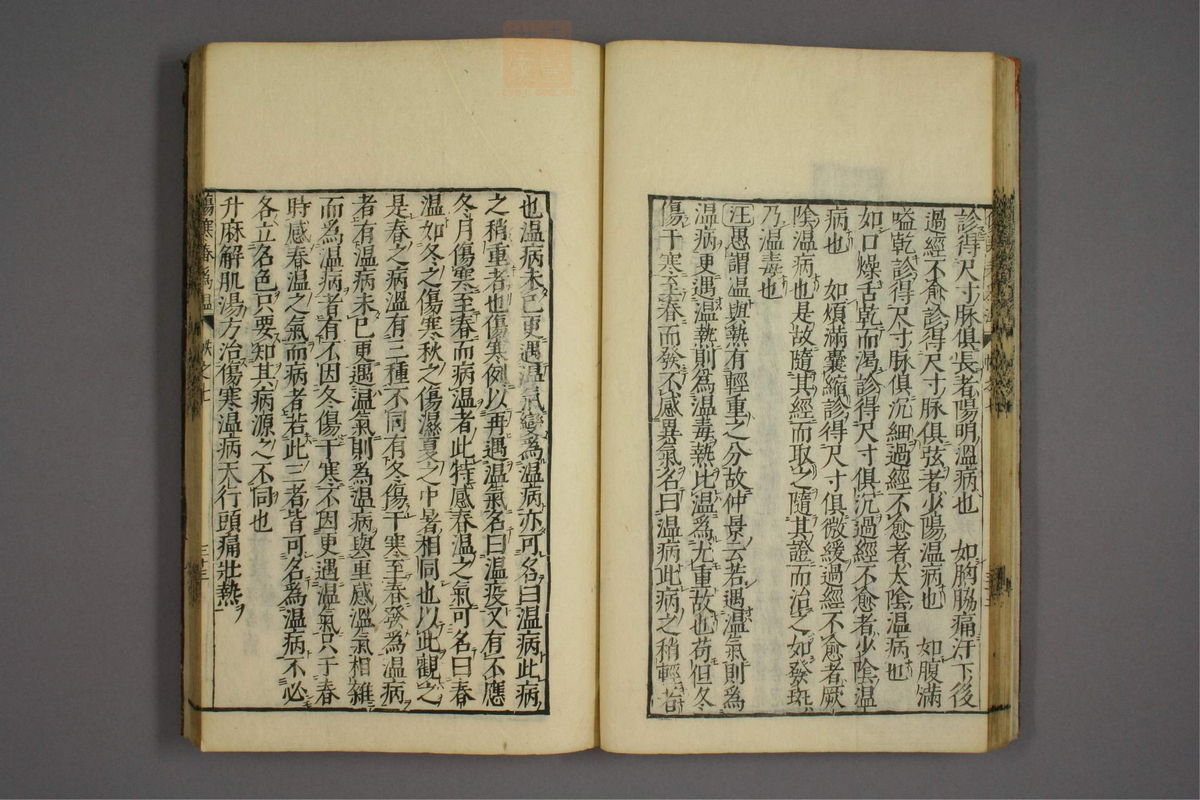 診得尺寸脉俱長者陽明溫病也　如胸脇痛汗下後
過經不愈診得尺寸脉俱弦者少陽温病也　如腹滿
嗌乾診得尺寸脉俱沉細過經不愈者太陰温病也
如口燥舌乾而渴診得尺寸俱沉過經不愈者少陰温
病也　如煩滿囊縮診得尺寸俱微緩過經不愈者厥
陰温病也是故隨其經而取之隨其證而治之如發斑
乃温毒也
汪愚謂温與熱有輕重之分故仲景云若遇温氣則爲
温病更遇温熱則爲温毒熱比温爲尤重故也苟但冬
傷于寒至春而發不感異氣名曰温病此病之稍輕者
也温病未已更遇温氣變爲温病亦可名曰温病此病
之稍重者也傷寒例以再遇温氣名曰温疫又有不應
冬月傷寒至春而病温者此特感春温之氣可名曰春
温如冬之傷寒秋之傷濕夏之中暑相同也以此觀之
是春之病溫有三種不同有冬傷于寒至春發爲温病
者有温病未已更遇温氣則爲温病與重感温氣相雜
而爲温病者有不因冬傷于寒不因更遇温氣只于春
時感春温之氣而病者若此三者皆可名爲温病不必
各立名色只要知其病源之不同也
升麻解肌湯方治傷寒温病天行頭痛壯熱
傷寒春爲温　之七　三十三